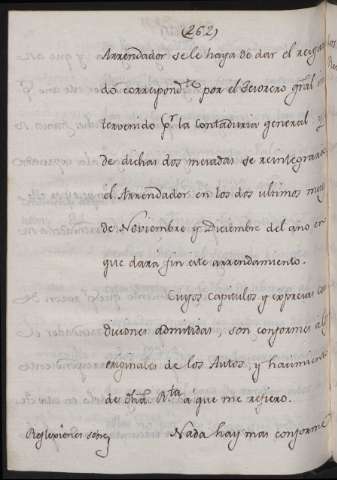 (262)
Arrendador se le haya de dar el resguar
do correspond.te por el Tesorero gral
tervenido p.r la Contaduria general y
de dichas dos mesadas se reintegrara
el Arrendador en los dos ultimos mes
de Noviembre y Diciembre del año en
que dará fin este arrendamiento.
Cuyos Capitulos y expresas con
diciones admitidas, son conformes al
originales de los Autos, y hacimiento
de dha R.ta a que me refiero.
Reflexiones sobre
Nada hay mas conforme